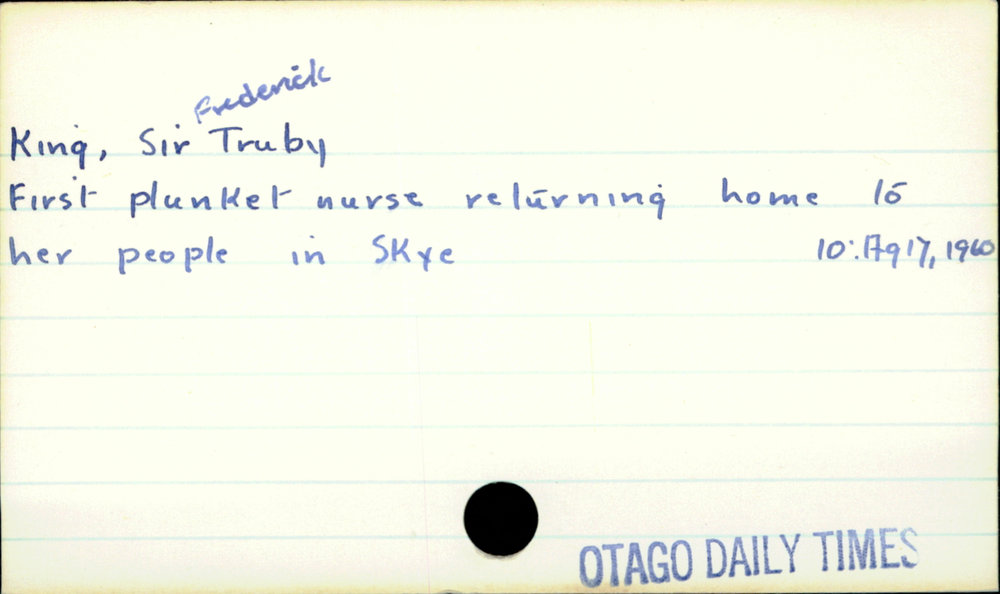 Frederick
King, Sir Truby
First plunket nurse returning home to
her people in Skye 10: Ag 17, 1960
OTAGO DAILY TIMES